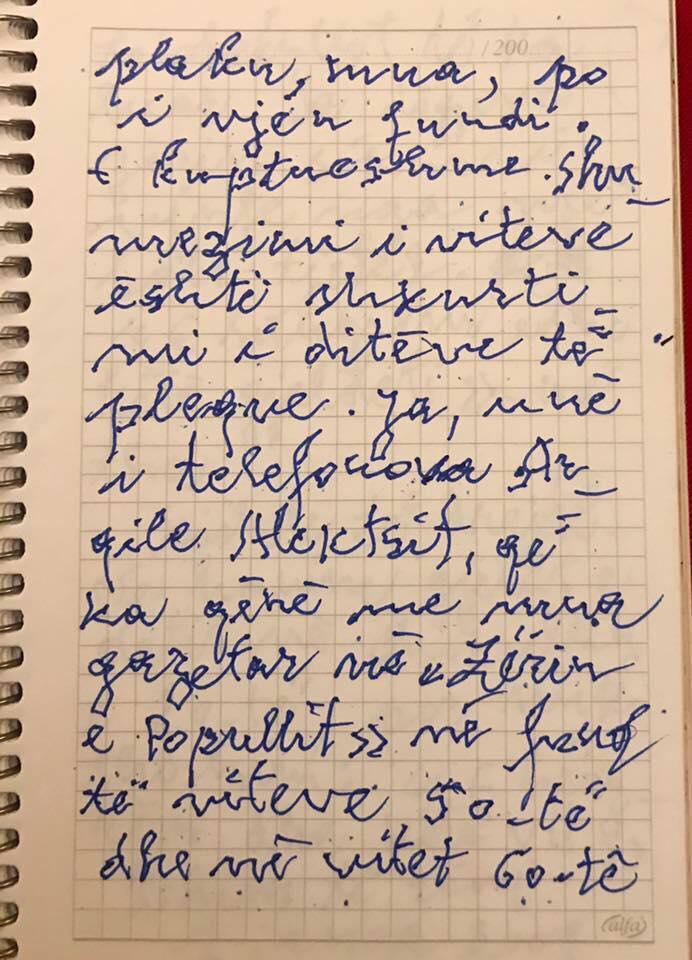 /200
plaku, mua, po
i vjen fundi.
E kuptueshme. Shu
mëzimi i viteve
është shkurti
mi i ditëve të
pleqve. Ja, unë
i telefonova Ar_
gile, që
ka qënë me mua
gazetar në „Zërin
e Popullit" në fund
të viteve 50-të
dhe në vitet 60-të
alfa